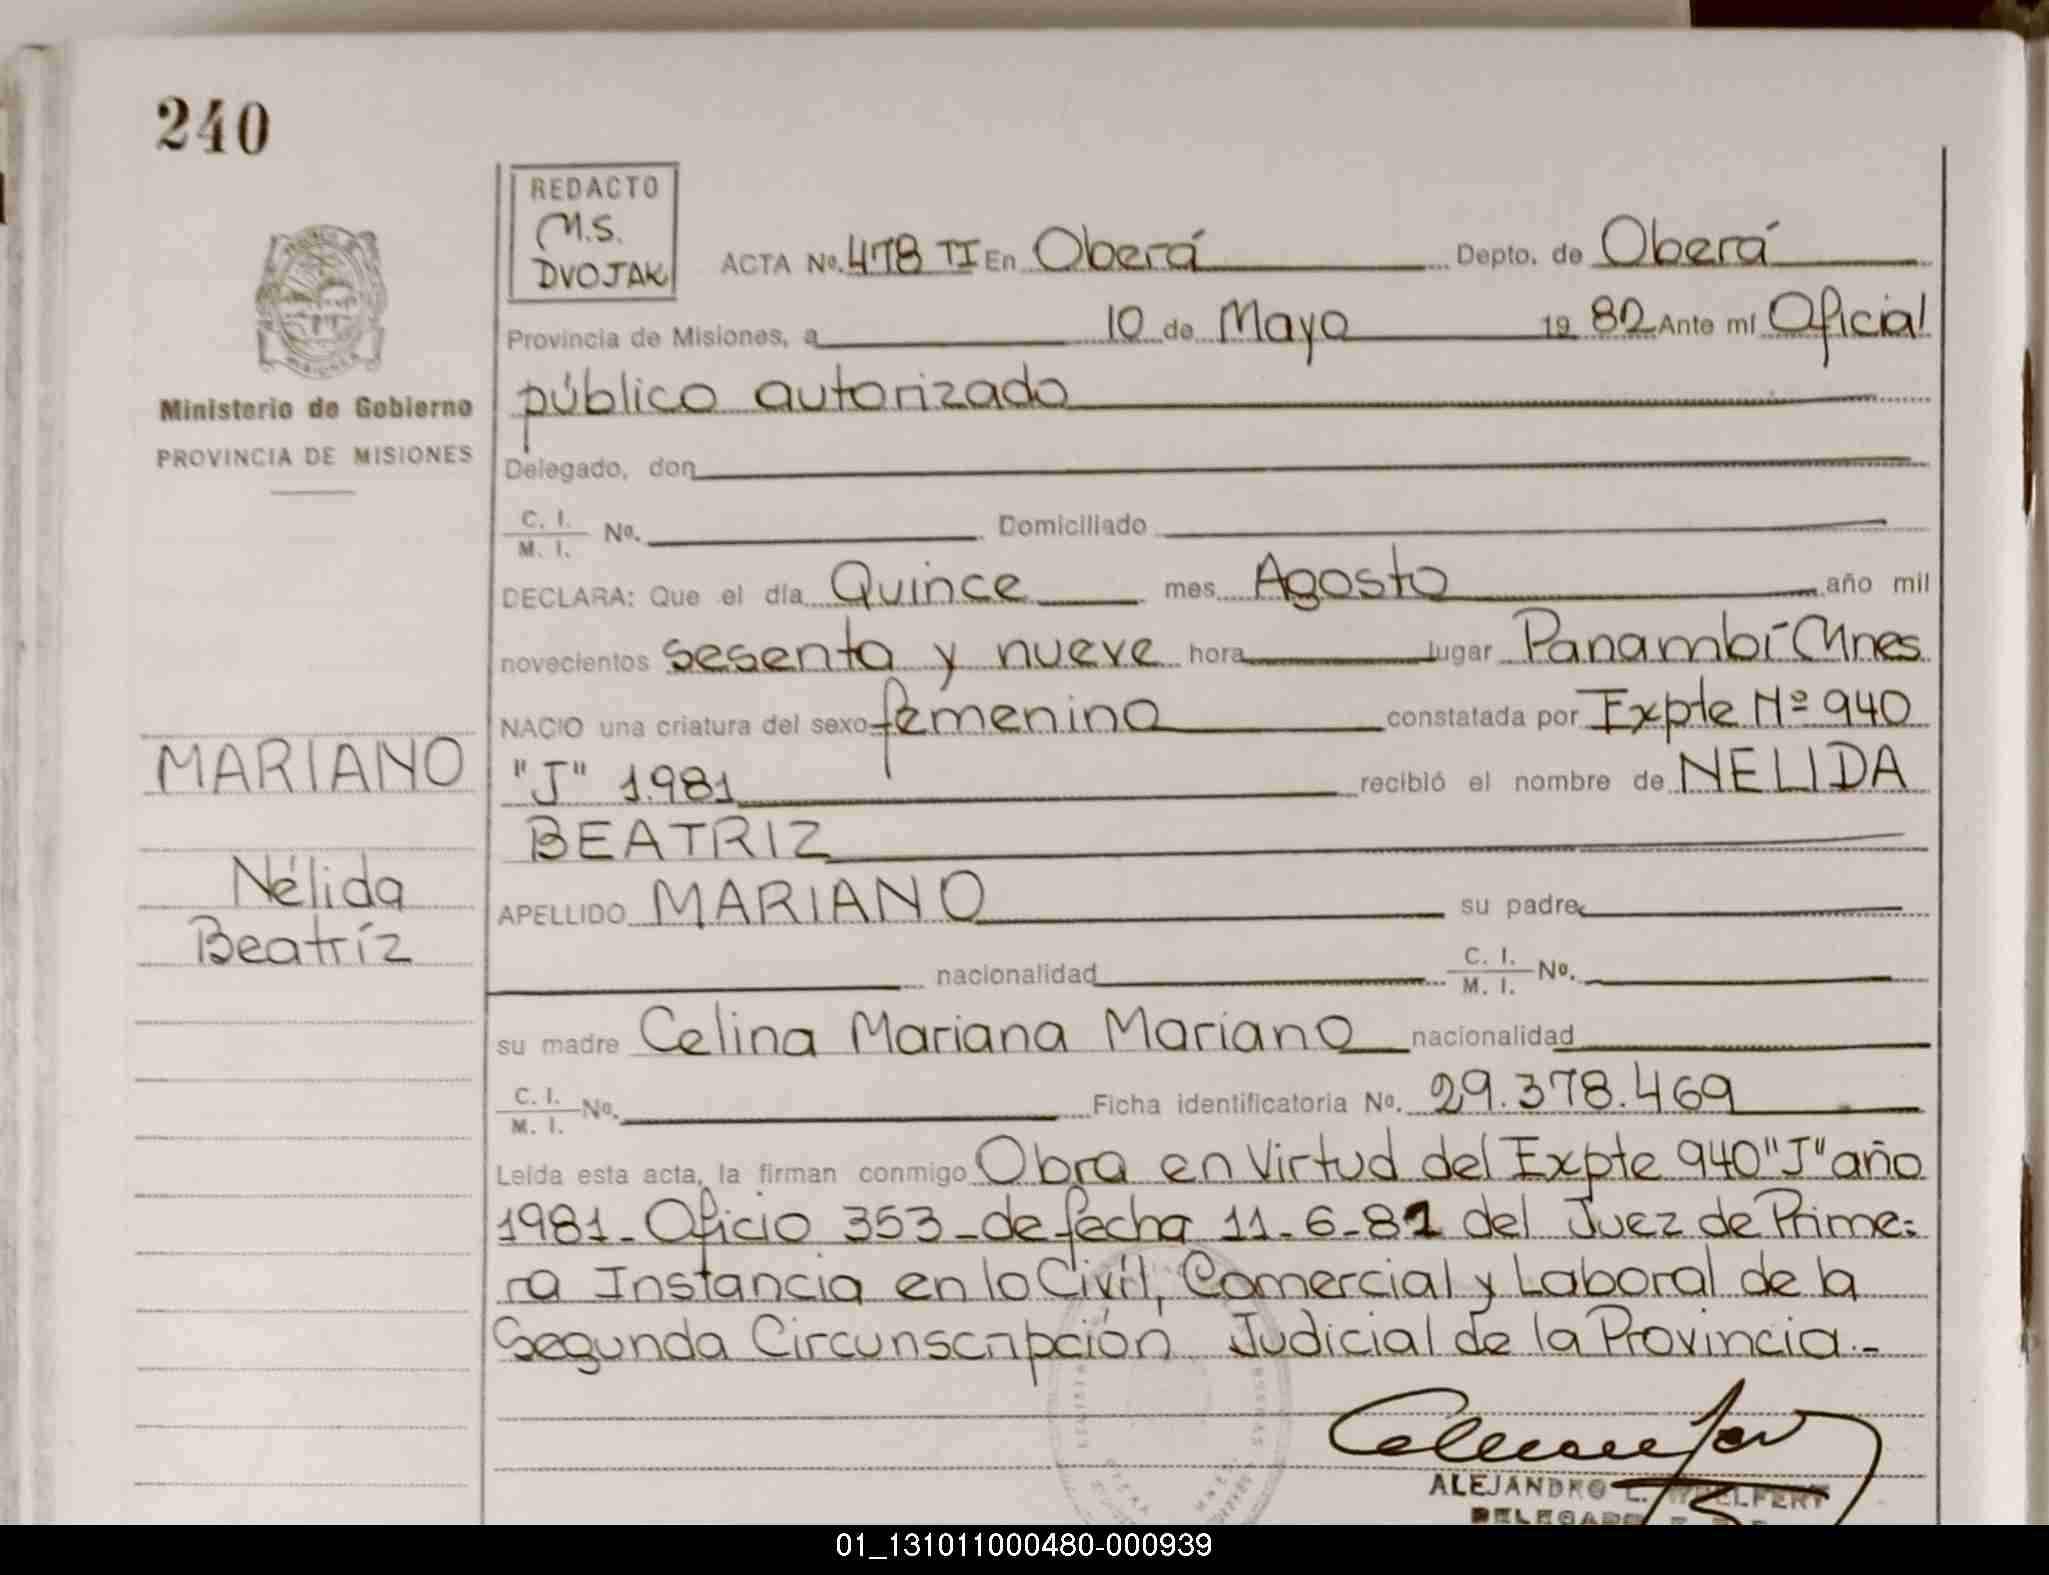 240
REDACTO
M.S.
DVOJAK
ACTA No. 478 TI En Oberá Depto. de Oberá
Provincia de Misiones, a 10 de Mayo 19 82 Ante mí Oficial
público autorizado
Ministerio de Gobierno
PROVINCIA DE MISIONES
Delegado, don
C. I.
M. I. No. Domiciliado
DECLARA: Que el día Quince mes Agosto año mil
novecientos sesenta y nueve hora lugar Panambí-Mnes
NACIO una criatura del sexo femenino constatada por Expte Nº 940
"J" 1.981 recibió el nombre de NELIDA
BEATRIZ
MARIANO
Nélida
Beatríz
APELLIDO MARIANO su padre
nacionalidad C. I.
M. I. No.
su madre Celina Mariana Mariano nacionalidad
C. I.
M. I. No. Ficha identificatoria No. 29.378.469
Leída esta acta, la firman conmigo Obra en Virtud del Expte 940 "J" año
1981_ Oficio 353_de fecha 11_6_81 del Juez de Prime=
ra Instancia en lo Civíl, Comercial y Laboral de la
Segunda Circunscripción Judicial de la Provincia.-
ALEJANDRO
DELEGADO
01_131011000480-000939